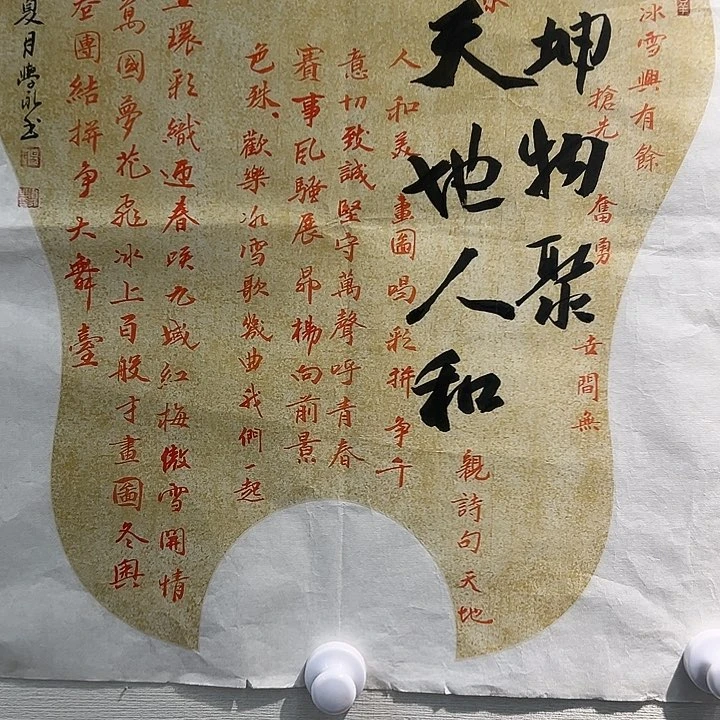 冰雪興有餘
搶先 奮勇 世間無
坤物聚
天地人和
親詩句天地
人和美畫圖唱彩拼争千
意切致誠堅守萬聲呼青春
賽事風騷展昴楊向前景
色殊歡樂冰雪歌幾曲我們一起
環彩織迎春咲九城紅梅傲雪開情
萬國夢花飛冰上百般才畫圖冬奥
團結拼争大舞臺
夏月學永书